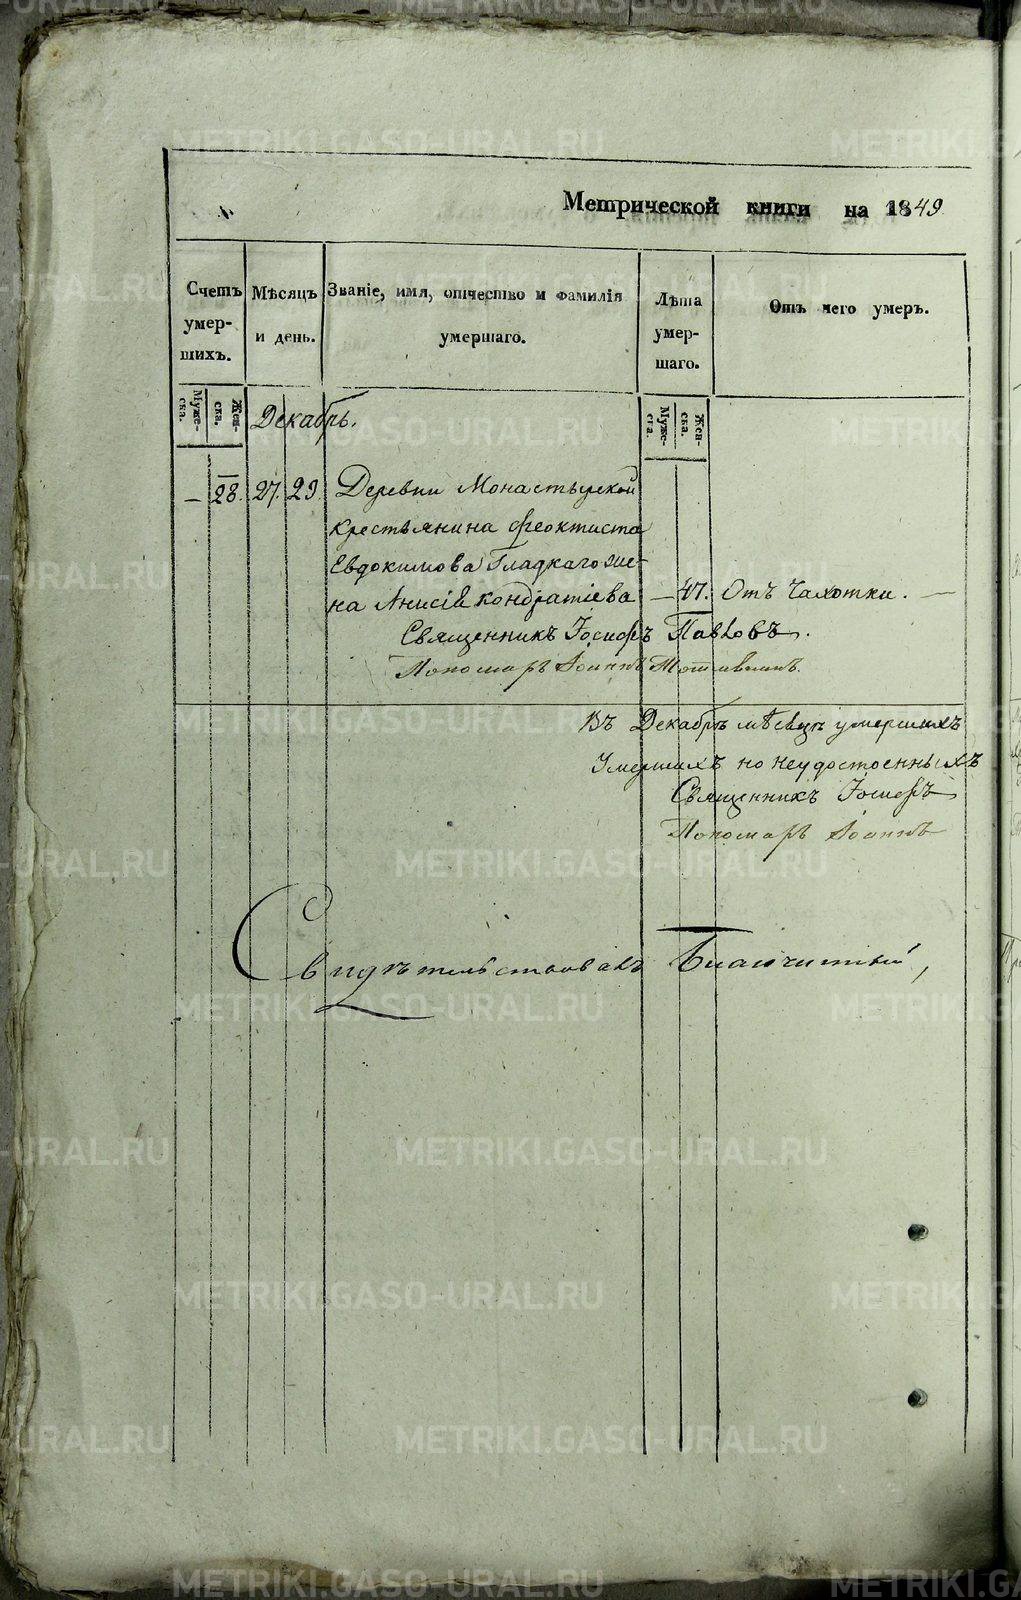 Метрической книги на 1849.
Счетъ умер-шихъ.
Мѣсяцъ и день.
Званіе, имя, отчество и фамилія умершаго.
Лѣта умер-шаго.
Отъ чего умеръ.
Муже-ска.
Жен-ска.
Муже-ска.
Жен-ска.
Декабрь.
— 28. 27. 29. Деревни Монастырской
крестьянина Феоктиста
Евдокимова Гладкаго же-
на Анисія Кондратіева — 47. Отъ Чахотки. —
Священникъ Іосифъ Павловъ.
Пономарь Іоаннъ
Въ Декабрѣ мѣсяцѣ умершихъ
Умершихъ но неудостоенныхъ
Священникъ Іосифъ
Пономарь Іоаннъ
Свидѣтельствовалъ Благочинный,
METRIKI.GASO-URAL.RU